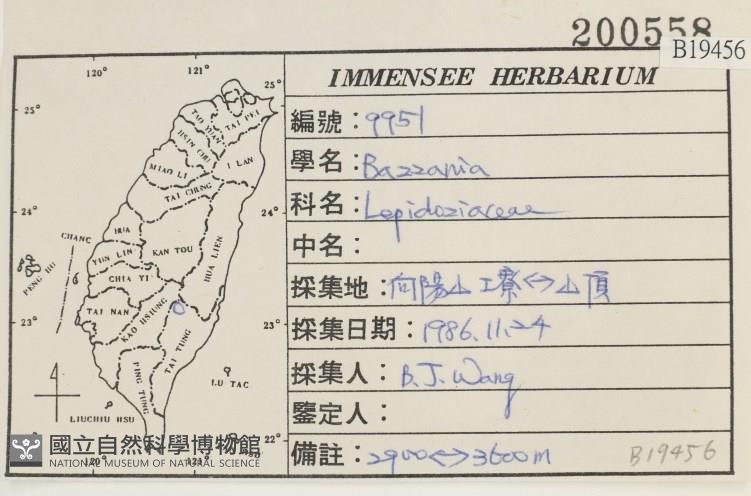 200558
B19456
IMMENSEE HERBARIUM
編號：9951
學名：Bazzania
科名：Lepidoziaceae
中名：
採集地：向陽山工寮<->山頂
採集日期：1986.11.24
採集人：B.J.Wang
鑒定人：
備註：2900<->3600m
B19456
120° 121° 25°
25°
TAI PEI
TAO YUAN
HSIN CHU
I LAN
MIAO LI
TAI CHUNG
24° 24°
CHANG
HUA
NAN TOU
HUA LIEN
YUN LIN
PENG HU
CHIA YI
TAI NAN
KAO HSIUNG
23° 23°
TAI TUNG
PING TUNG
LU TAO
LIUCHIU HSU
22°
120° 121°
國立自然科學博物館
NATIONAL MUSEUM OF NATURAL SCIENCE